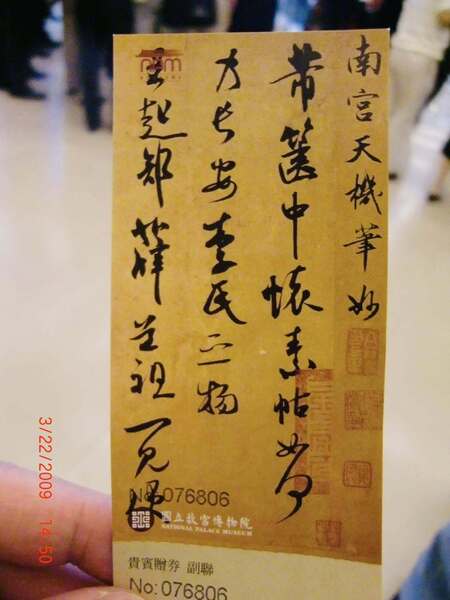 南宮天機筆妙
芾篋中懷素帖如何
乃長安李氏之物
王起部薛道祖一見便
npm
No:076806
國立故宮博物院
NATIONAL PALACE MUSEUM
貴賓贈券 副聯
No:076806
3/22/2009 14:50